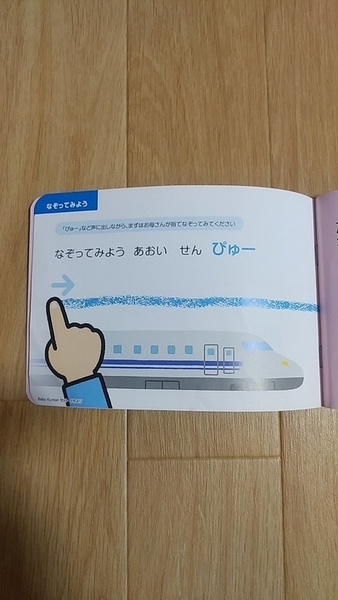 なぞってみよう
「ぴゅー」など声に出しながら、まずはお母さんが指でなぞってみてください
なぞってみよう あおい せん ぴゅー
Baby Kumon